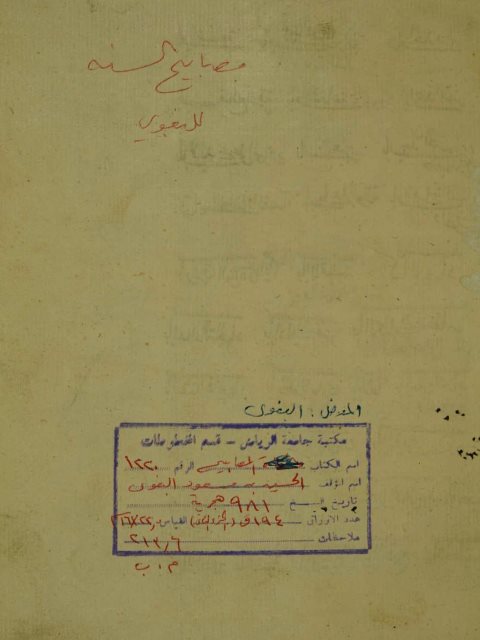 مصابيح السنه
للبغوي
المدخل : البغوى
مكتبة جامعة الرياض – قسم المخطوطات
اسم الكتاب المصابيح الرقم ١٢٢٠
اسم المؤلف الحسين بن مسعود البغوى
تاريخ النسخ ٩٨١ هجرية
عدد الأوراق ١٩٤ ق القياس
ملاحظات ٢١٣/٦
م . ب